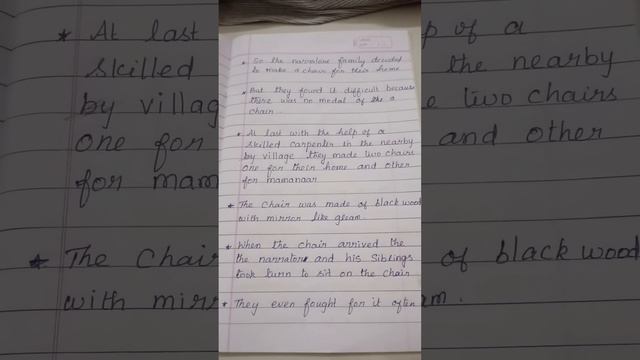 * At last
skilled
by villag
one for
for mam
* The Chair
with mirr
* So the narratore family decided
to make a chair for their home
* But they found it difficult because
there was no medal of the a
chair.
* At last with the help of a
skilled carpenter in the nearby
by village they made two chairs
one for their home and other
for mamanaar
* The chair was made of black wood
with mirror like gleam.
* When the chair arrived the
the narratore and his Siblings
took turn to sit on the chair
* They even fought for it often
p of a
the nearby
e two chairs
and other
of black wood
am.